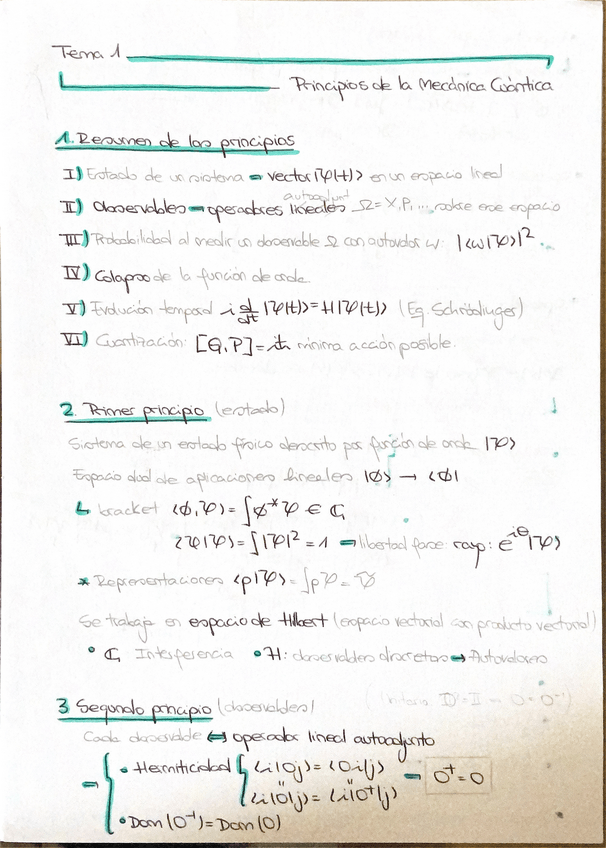 Tema 1
Principios de la Mecánica Cuántica
1. Resumen de los principios
I) Estado de un sistema → vector |ψ(t)> en un espacio lineal
autoadjunt
II) Observables → operadores lineales Ω = X, P, ... sobre ese espacio
III) Probabilidad al medir un observable Ω con autovalor ω: |<ω|ψ>|²
IV) Colapso de la función de onda
V) Evolución temporal i d/dt |ψ(t)> = H|ψ(t)> (Eq. Schrödinger)
VI) Cuantización: [Q,P] = iħ mínima acción posible.
2. Primer principio (estado)
Sistema de un estado físico descrito por función de onda |ψ>
Espacio dual de aplicaciones lineales |ϕ> → <ϕ|
↳ bracket <ϕ,ψ> = ∫ϕ*ψ ∈ ℂ
<ψ|ψ> = ∫|ψ|² = 1 → libertad fase: rayo: e^iθ|ψ>
* Representaciones <p|ψ> = ∫pψ =
Se trabaja en espacio de Hilbert (espacio vectorial con producto vectorial)
• ℂ Interferencia • H: observables discretos ↔ Autovalores
3 Segundo principio (observables)
Cada observable ↔ operador lineal autoadjunto
→ { • Hermiticidad { <i|Oj> = <Oi|j> → O⁺=O
<i|O|j> = <i|O⁺|j>
• Dom(O⁺) = Dom(O)